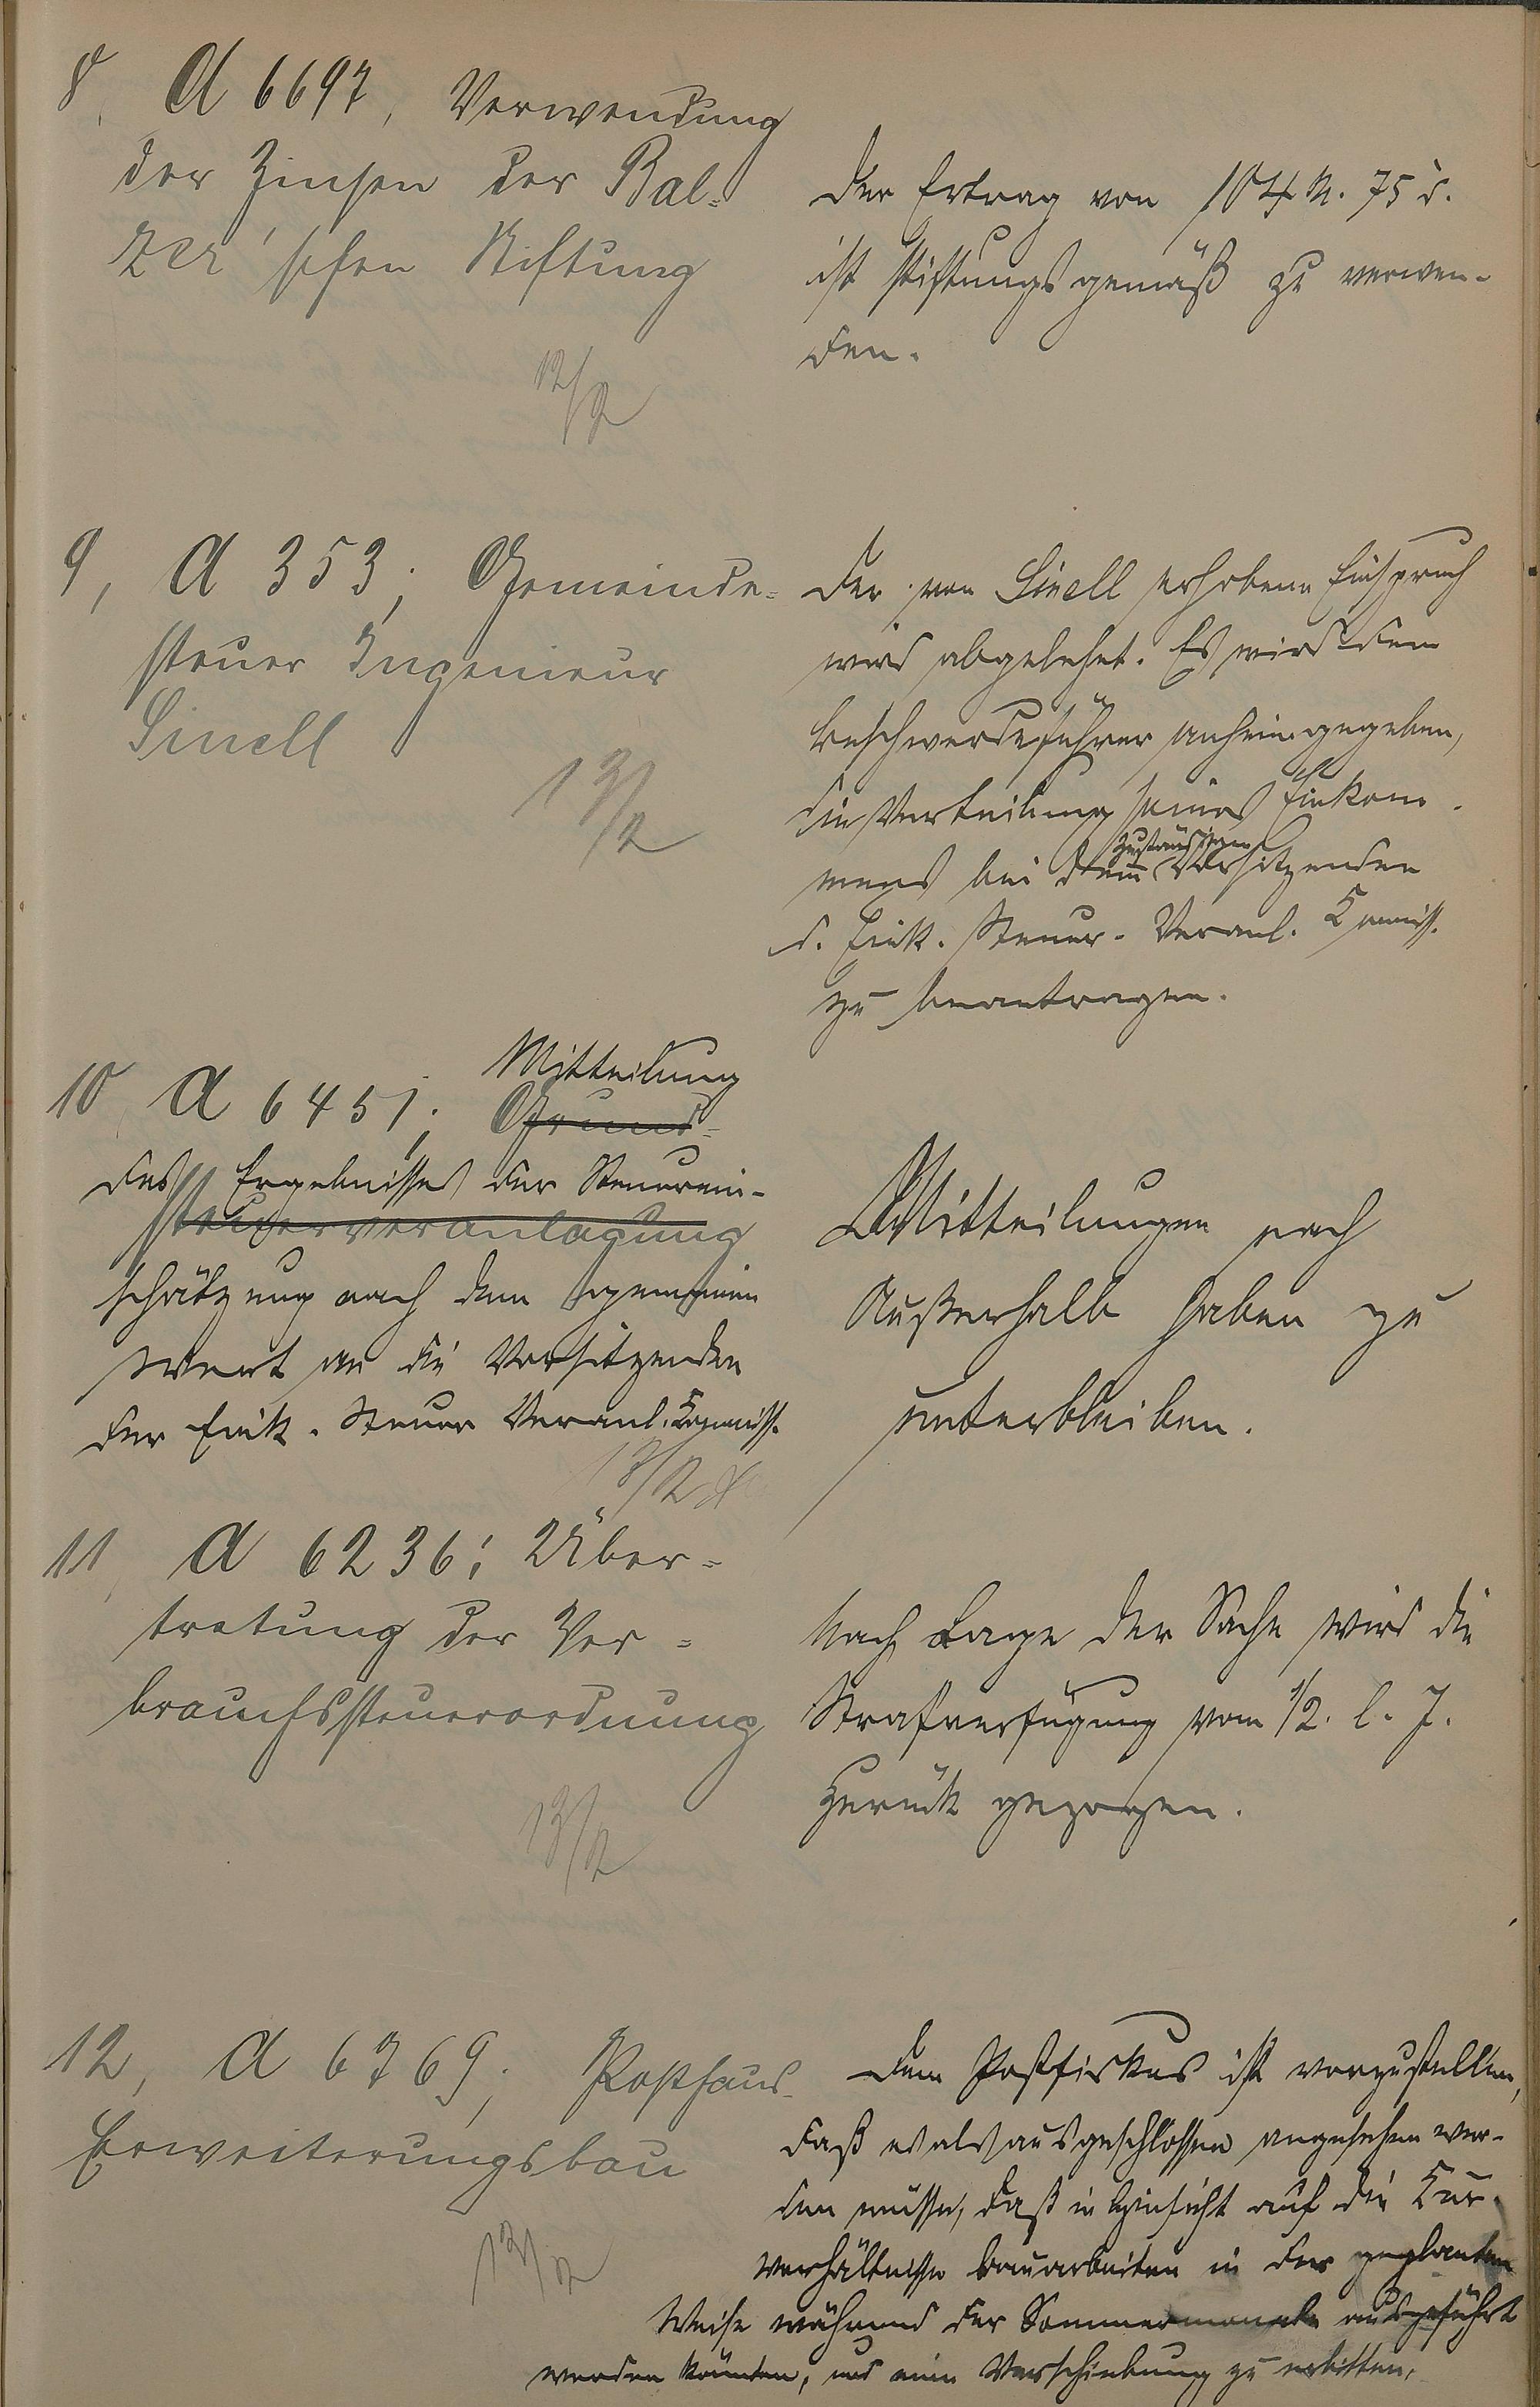 8, A 6697, Verwendung
der Zinsen der Bal=
zer'schen Stiftung
12/2
Der Ertrag von 104 M. 75 d.
ist stiftungsgemäß zu verwen-
den.
9, A 353; Gemeinde=
steuer Ingenieur
Sinell
13/2
Der von Sinell erhobene Einspruch
wird abgelehnt. Es wird dem
Beschwerdeführer anheimgegeben,
die Verteilung seines Einkom-
mens bei dem zuständigen Vorsitzenden
d. Eink. Steuer-Veranl. Kommiss.
zu beantragen.
10, A 6451; Mitteilung
Grund=
des Ergebnisses der Steuerein-
steuerveranlagung
schätzung nach dem gemeinen
Wert an die Vorsitzenden
der Eink. Steuer Veranl. Kommiss.
13/2
Mitteilungen nach
Außerhalb haben zu
unterbleiben.
11, A 6236; Über=
tretung der Ver=
brauchssteuerordnung
13/2
Nach Lage der Sache wird die
Strafverfügung vom 1/2. l. J.
zurück gezogen.
12, A 6769; Posthaus-
Erweiterungsbau
13/2
Dem Postfiskus ist vorzustellen,
daß es als ausgeschlossen angesehen wer-
den müsse, daß in Hinsicht auf die Kur-
verhältnisse Bauarbeiten in der geplanten
Weise während der Sommermonate ausgeführt
werden könnten, und eine Verschiebung zu erbitten.